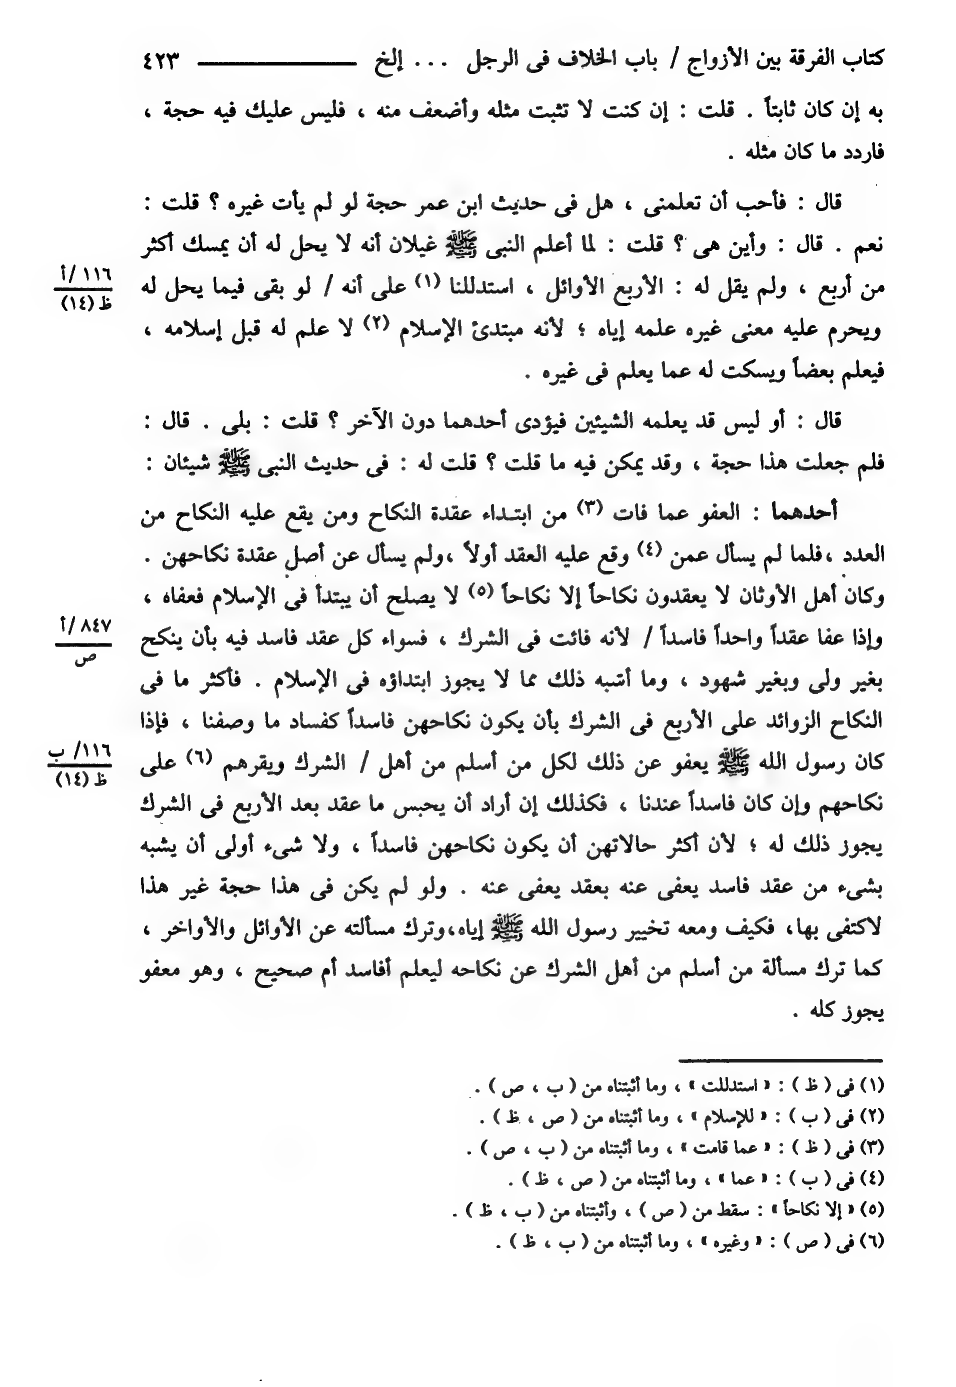 كتاب الفرقة بين الأزواج / باب الخلاف فى الرجل ... إلخ ــــــــــــــ ٤٢٣
به إن كان ثابتاً . قلت : إن كنت لا تثبت مثله وأضعف منه ، فليس عليك فيه حجة ،
فاردد ما كان مثله .
قال : فأحب أن تعلمنى ، هل فى حديث ابن عمر حجة لو لم يأت غيره ؟ قلت :
نعم . قال : وأين هى ؟ قلت : لما أعلم النبى ﷺ غيلان أنه لا يحل له أن يمسك أكثر
١١٦ /أ
ظ (١٤)
من أربع ، ولم يقل له : الأربع الأوائل ، استدللنا (١) على أنه / لو بقى فيما يحل له
ويحرم عليه معنى غيره علمه إياه ؛ لأنه مبتدئ الإسلام (٢) لا علم له قبل إسلامه ،
فيعلم بعضاً ويسكت له عما يعلم فى غيره .
قال : أو ليس قد يعلمه الشيئين فيؤدى أحدهما دون الآخر ؟ قلت : بلى . قال :
فلم جعلت هذا حجة ، وقد يمكن فيه ما قلت ؟ قلت له : فى حديث النبى ﷺ شيئان :
أحدهما : العفو عما فات (٣) من ابتداء عقدة النكاح ومن يقع عليه النكاح من
العدد ،فلما لم يسأل عمن (٤) وقع عليه العقد أولاً ،ولم يسأل عن أصل عقدة نكاحهن .
وكان أهل الأوثان لا يعقدون نكاحاً إلا نكاحاً (٥) لا يصلح أن يبتدأ فى الإسلام فعفاه ،
٨٤٧ /أ
ص
وإذا عفا عقداً واحداً فاسداً / لأنه فائت فى الشرك ، فسواء كل عقد فاسد فيه بأن ينكح
بغير ولى وبغير شهود ، وما أشبه ذلك مما لا يجوز ابتداؤه فى الإسلام . فأكثر ما فى
النكاح الزوائد على الأربع فى الشرك بأن يكون نكاحهن فاسداً كفساد ما وصفنا ، فإذا
١١٦/ ب
ظ (١٤)
كان رسول الله ﷺ يعفو عن ذلك لكل من أسلم من أهل / الشرك ويقرهم (٦) على
نكاحهم وإن كان فاسداً عندنا ، فكذلك إن أراد أن يحبس ما عقد بعد الأربع فى الشرك
يجوز ذلك له ؛ لأن أكثر حالاتهن أن يكون نكاحهن فاسداً ، ولا شىء أولى أن يشبه
بشىء من عقد فاسد يعفى عنه بعقد يعفى عنه . ولو لم يكن فى هذا حجة غير هذا
لاكتفى بها، فكيف ومعه تخيير رسول الله ﷺ إياه،وترك مسألته عن الأوائل والأواخر ،
كما ترك مسألة من أسلم من أهل الشرك عن نكاحه ليعلم أفاسد أم صحيح ، وهو معفو
يجوز كله .
(١) فى ( ظ ) : « استدللت » ، وما أثبتناه من ( ب ، ص ) .
(٢) فى ( ب ) : « للإسلام » ، وما أثبتناه من ( ص ، ظ ) .
(٣) فى ( ظ ) : « عما قامت » ، وما أثبتناه من ( ب ، ص ) .
(٤) فى ( ب ) : « عما » ، وما أثبتناه من ( ص ، ظ ) .
(٥) « إلا نكاحاً » : سقط من ( ص ) ، وأثبتناه من ( ب ، ظ ) .
(٦) فى ( ص ) : « وغيره » ، وما أثبتناه من ( ب ، ظ ) .